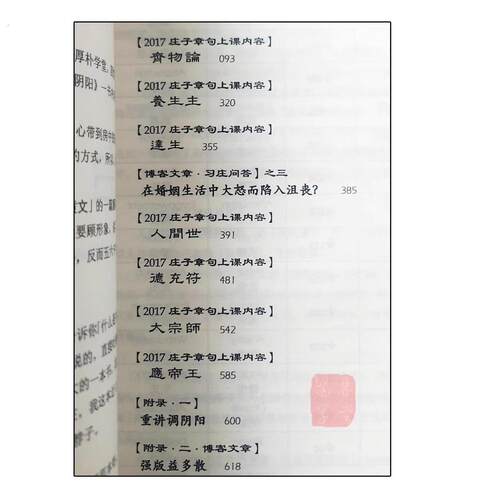 【2017 庄子章句上课内容】
齊物論 093
【2017 庄子章句上课内容】
養生主 320
【2017 庄子章句上课内容】
達生 355
【博客文章·习庄问答】之三
在婚姻生活中大怒而陷入沮丧？ 385
【2017 庄子章句上课内容】
人間世 391
【2017 庄子章句上课内容】
德充符 481
【2017 庄子章句上课内容】
大宗師 542
【2017 庄子章句上课内容】
應帝王 585
【附录·一】
重讲调阴阳 600
【附录·二·博客文章】
强版益多散 618
厚朴学堂
阴阳》
心带到房中的
的方式，所以
文」的一篇
要顾形象，
，反而五
诉你「什么是
说的，直要
的一本书
。我这本
脖子。